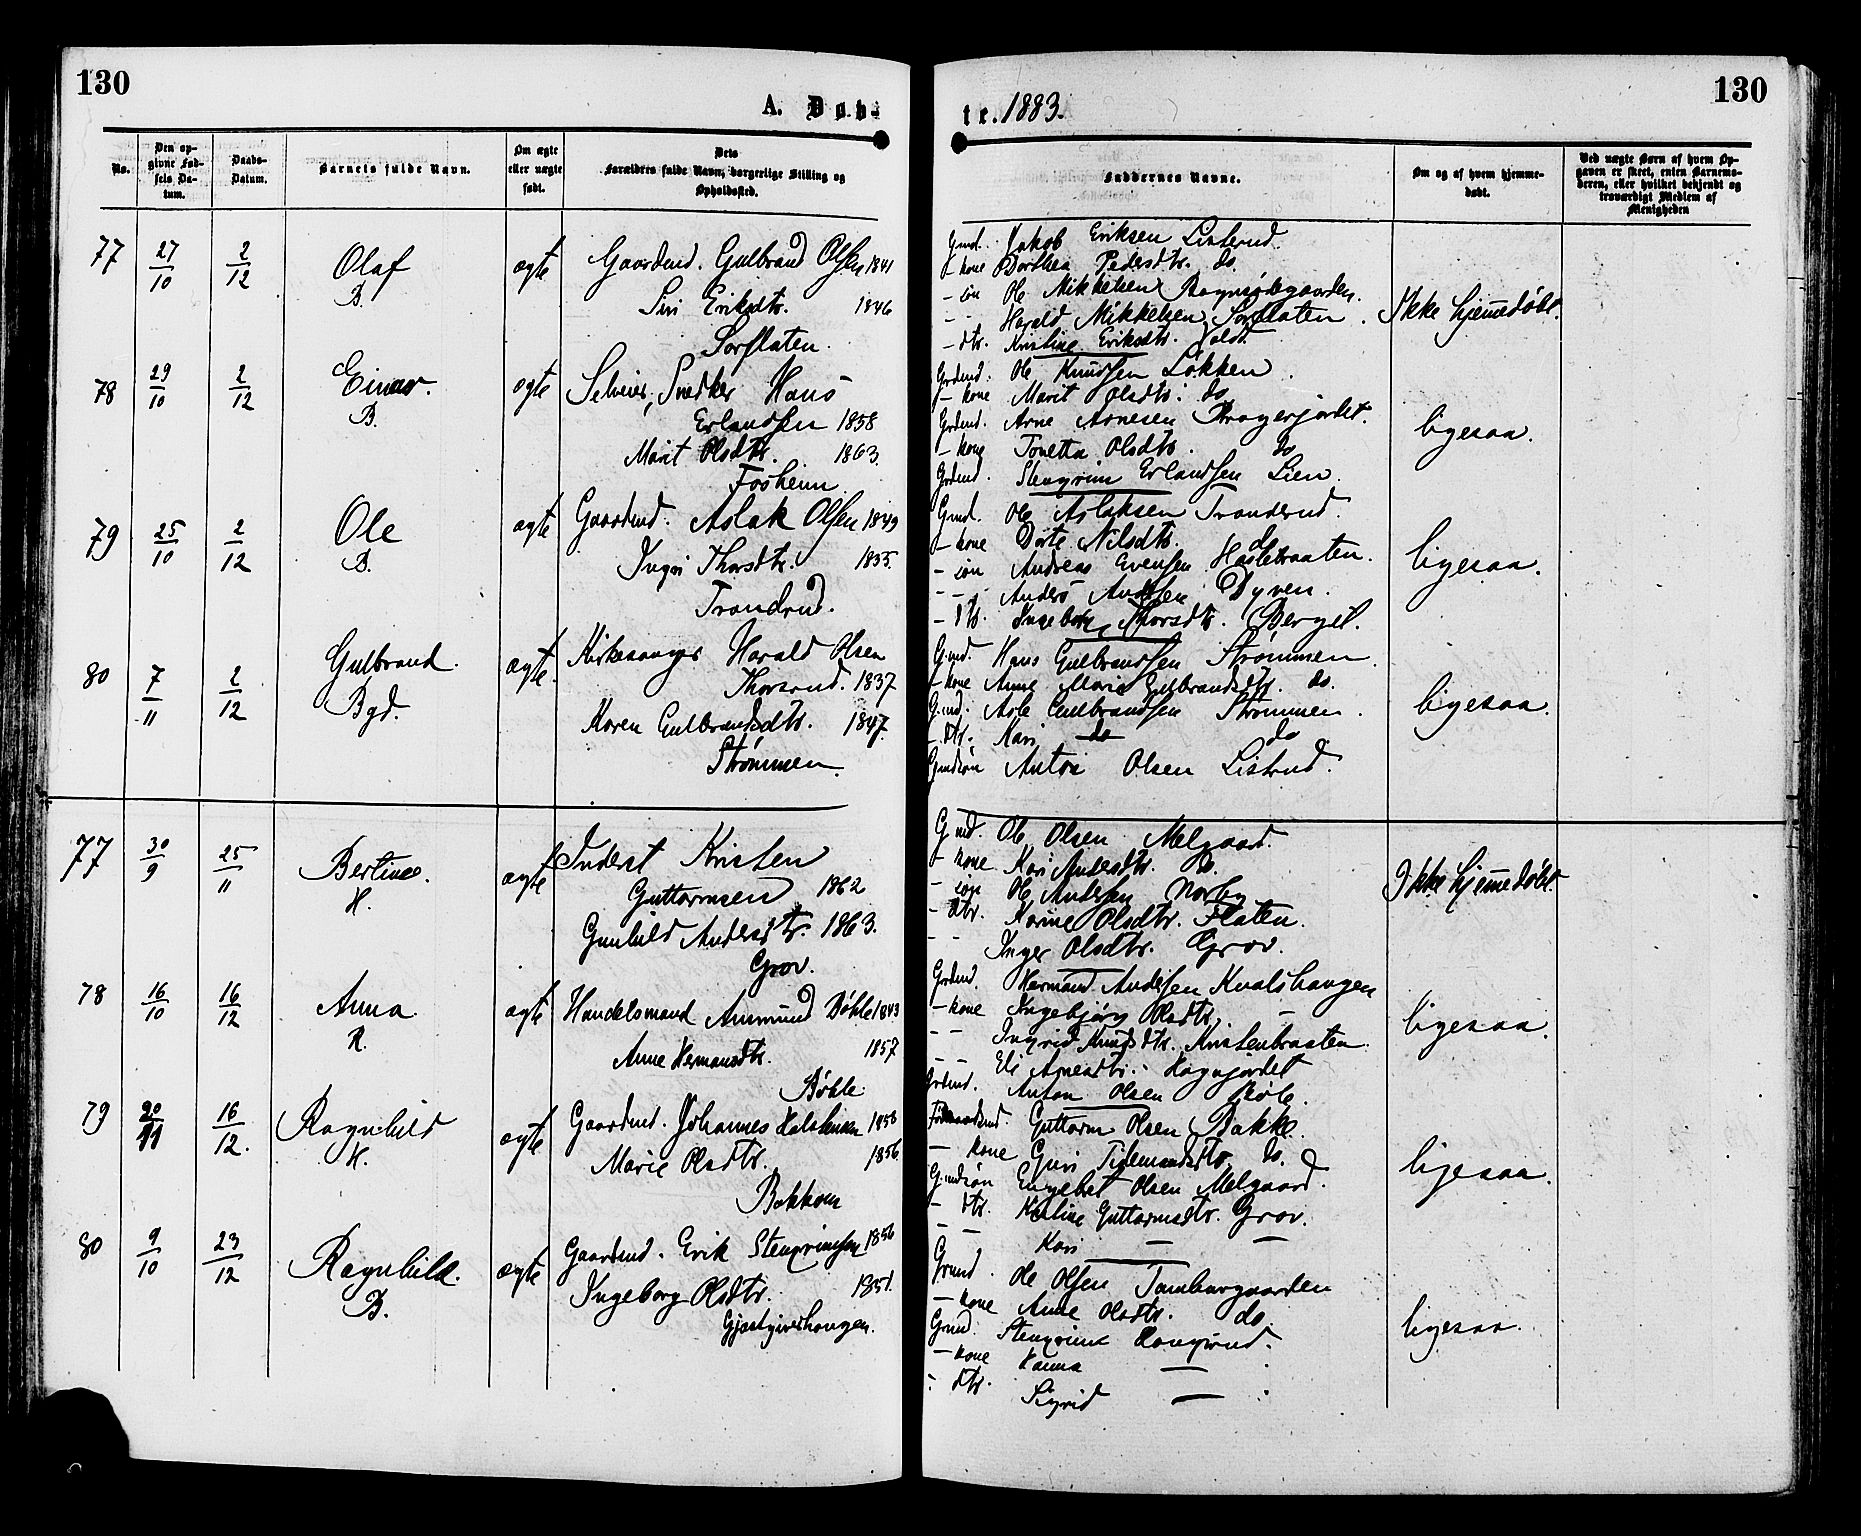 130
130
A. Døb
te. 1883.
No.
Den opgivne Fødsels Datum.
Daabs-Datum.
Barnets fulde Navn.
Om ægte eller uægte født.
Dets Forældres fulde Navn, borgerlige Stilling og Opholdssted.
Faddernes Navne.
Om og af hvem hjemmedøbt.
Ved uægte Børn af hvem Opgaven er skeet, enten Barnemoderen, eller hvilket bekjendt og troværdigt Medlem af Menigheden
77 27/10 2/12 Olaf B. ægte
Gaardmd. Gulbrand Olsen 1841
Siri Eriksdtr. 1846
Sorflaten.
Gmd. Jakob Eriksen Listerud
- kone Dorthea Pedersdtr. do.
- søn Ole Mikkelsen Bagnsødegaarden.
- - Harald Mikkelsen Sorflaten.
- dtr. Kristine Eriksdtr. Vold
Ikke hjemmedøbt.
78 29/10 2/12 Einar. B. ægte
Selveier, Snedker Hans
Erlandsen 1858
Marit Olsdtr. 1863.
Fosheim
Grdmd. Ole Knudsen Løkken.
- kone Marit Olsdtr. do
Grdmd. Arne Arnesen Bragerjordet.
- kone Tonetta Olsdtr. do
Grdmd. Stengrim Erlandsen Lien.
ligesaa.
79 25/10 2/12 Ole B. ægte
Gaardmd. Aslak Olsen 1849
Ingri Thorsdtr. 1855.
Trondrud.
Gmd. Ole Aslaksen Tronderud.
- kone Dorte Nilsdtr. do
- søn Andreas Evensen Haslebraaten.
- - Anders Andersen Dyven.
- dtr. Ingeborg Thorsdtr. Bergel.
ligesaa.
80 7/11 2/12 Gulbrand. Bgd. ægte.
Kirkesanger Harald Olsen
Thorsrud. 1837
Karen Gulbrandsdtr. 1847.
Strømmen.
G.md. Hans Gulbrandsen Strømmen.
- kone Anne Marie Gulbrandsdtr. do.
G.md. Arle Gulbrandsen Strømmen.
- dtr. Kari do do
Gmdsøn Anton Olsen Listrud.
ligesaa.
77 30/9 25/11 Bertine. H. ægte
Inderst Kristen
Guttormsen 1862
Gunhild Andersdtr. 1863.
Grov.
Gmd. Ole Olsen Melgaard.
- kone Kari Andersdtr. do.
- søn Ole Andersen Norby
- dtr. Karine Olsdtr. Flaten.
- - Inger Olsdtr. Grov.
Ikke hjemmedøbt
78 16/10 16/12 Anna R. ægte
Handelsmand Ammund Bøhle 1843
Anne Hermansdtr. 1857
Bøhle.
Grdmd. Hermand Andersen Kvalshaugen
- kone Ingebjørg Olsdtr. -
- - Ingrid Knudsdtr. Kristenbraaten.
- - Eli Arnesdtr. Hagajordet
Grdmd. Anton Olsen
ligesaa.
79 20/11 16/12. Ragnhild H. ægte
Gaardmd. Johannes 1858
Marie Olsdtr. 1856.
Bakkom
Guttorm Olsen Bakke.
- kone Guri Tidemandsdtr. do.
Gmdsøn Engebret Olsen Melgaard.
- dtr. Karine Guttormsdtr. Grov.
- Kari - -
ligesaa.
80 9/10 23/12 Ragnhild. B. ægte
Gaardmd. Erik Stengrimsen 1856
Ingeborg Olsdtr. 1851.
Gjæstgiverhaugen.
Grmd. Ole Olsen Tamburgaarden
- kone Anne Olsdtr. do.
Gmd. Stengrim Haugsrud.
- kone Hanna -
- dtr. Sigrid -
ligesaa.